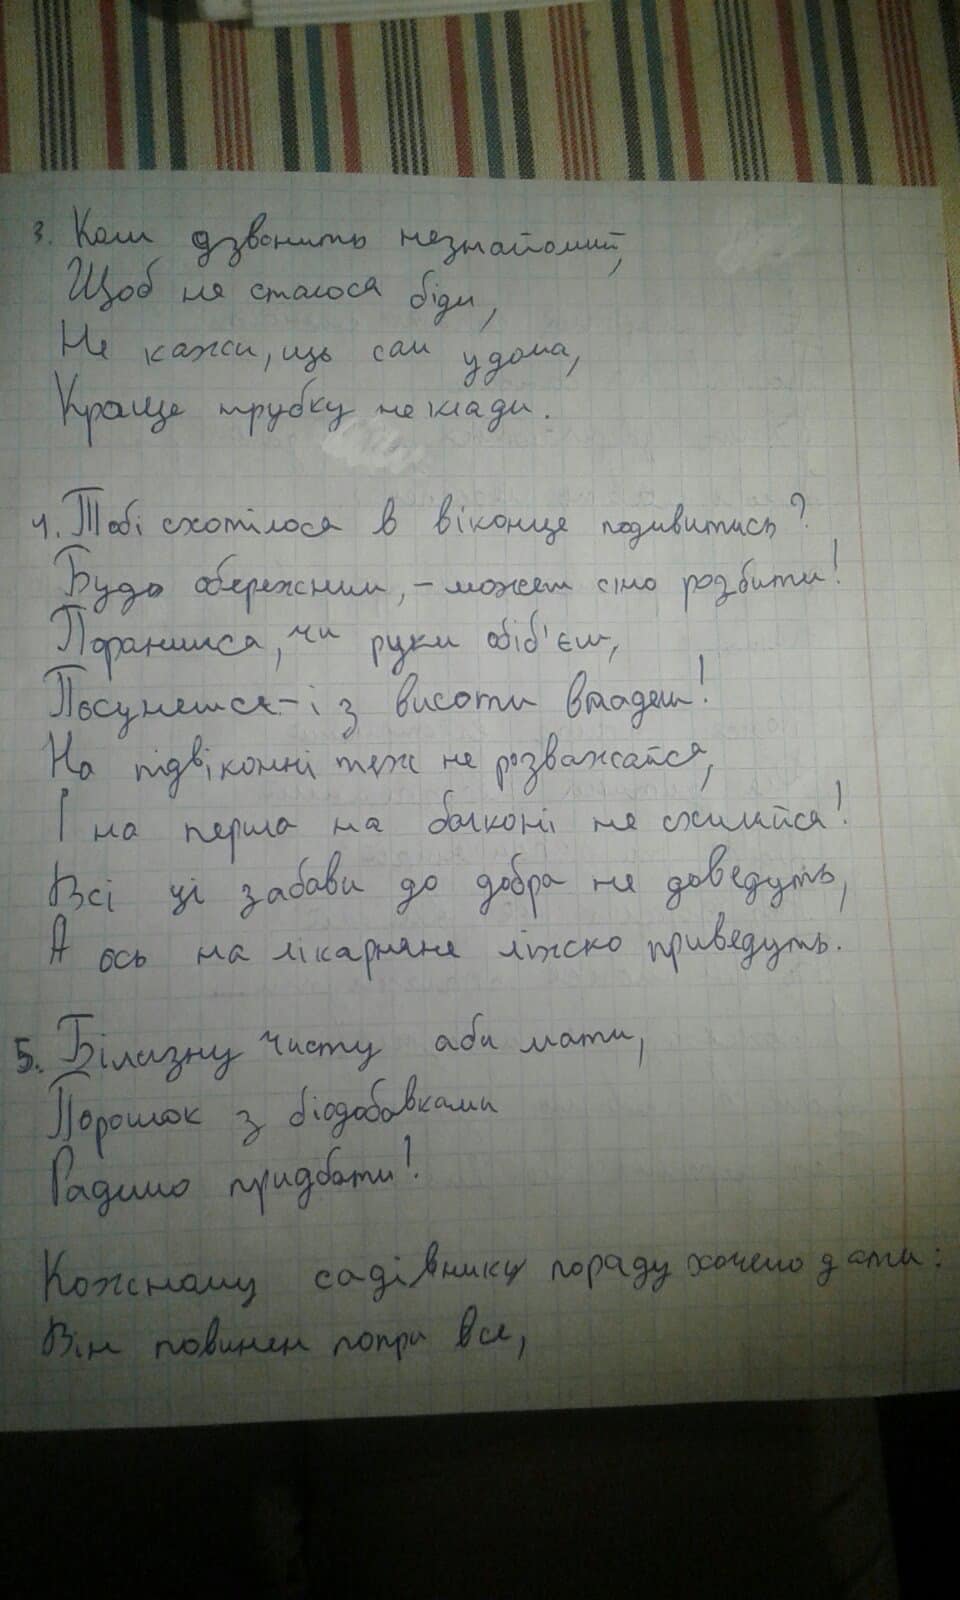 3. Коли дзвонить незнайомий,
Щоб не сталося біди,
Не кажи, що сам удома,
Краще трубку не клади.
4. Тобі схотілося в віконце подивитись?
Будь обережним, - можеш скло розбити!
Поранишся, чи руки обіб'єш,
Посунешся - і з висоти впадеш!
На підвіконні теж не розважайся,
І на перила на балконі не схиляйся!
Всі ці забави до добра не доведуть,
А ось на лікарняне ліжко приведуть.
5. Білизну чисту аби мати,
Порошок з біодобавками
Радимо придбати!
Кожному садівнику пораду хочемо дати:
Він повинен попри все,